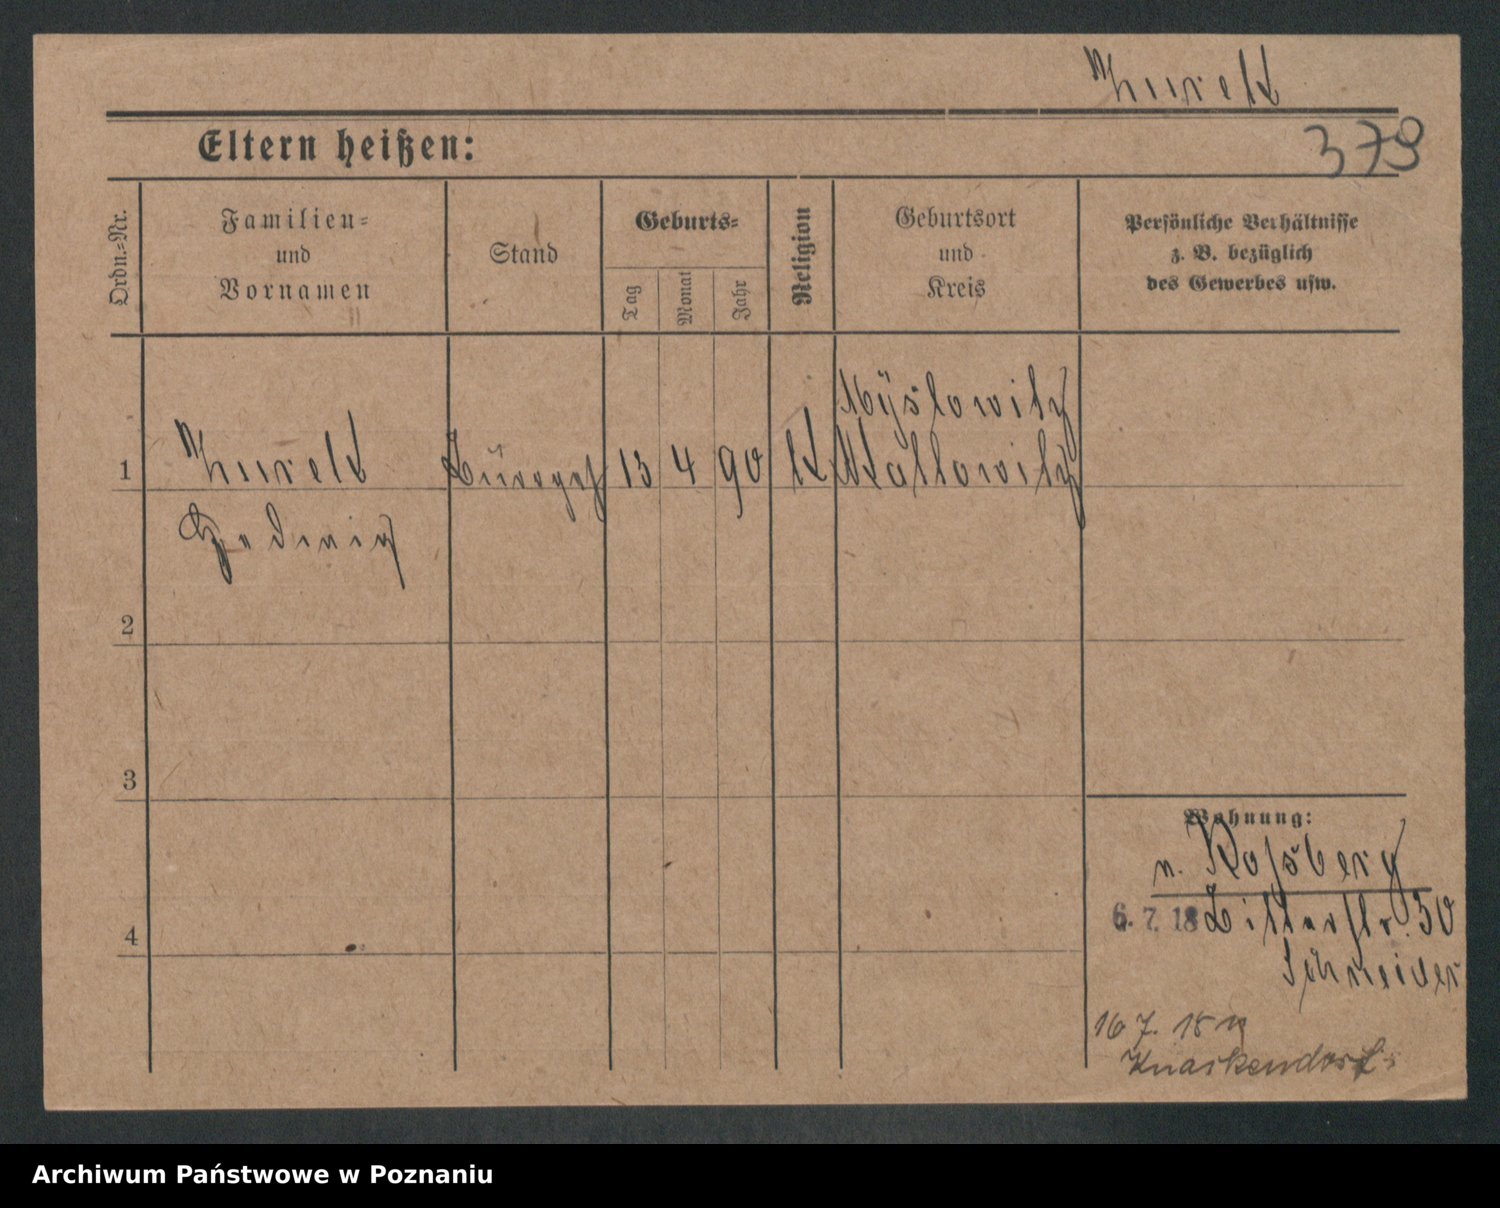 Zurek
379
Eltern heißen:
Ordn.=Nr.
Familien=
und
Vornamen
Stand
Geburts=
Tag
Monat
Jahr
Religion
Geburtsort
und
Kreis
Persönliche Verhältnisse
z. B. bezüglich
des Gewerbes usw.
1
Zurek
Hedwig
13
4
90
k
Myslowitz
Kattowitz
2
3
4
Wohnung:
n. Rossberg
6. 7. 18
30
Schneider
16 7. 18 n